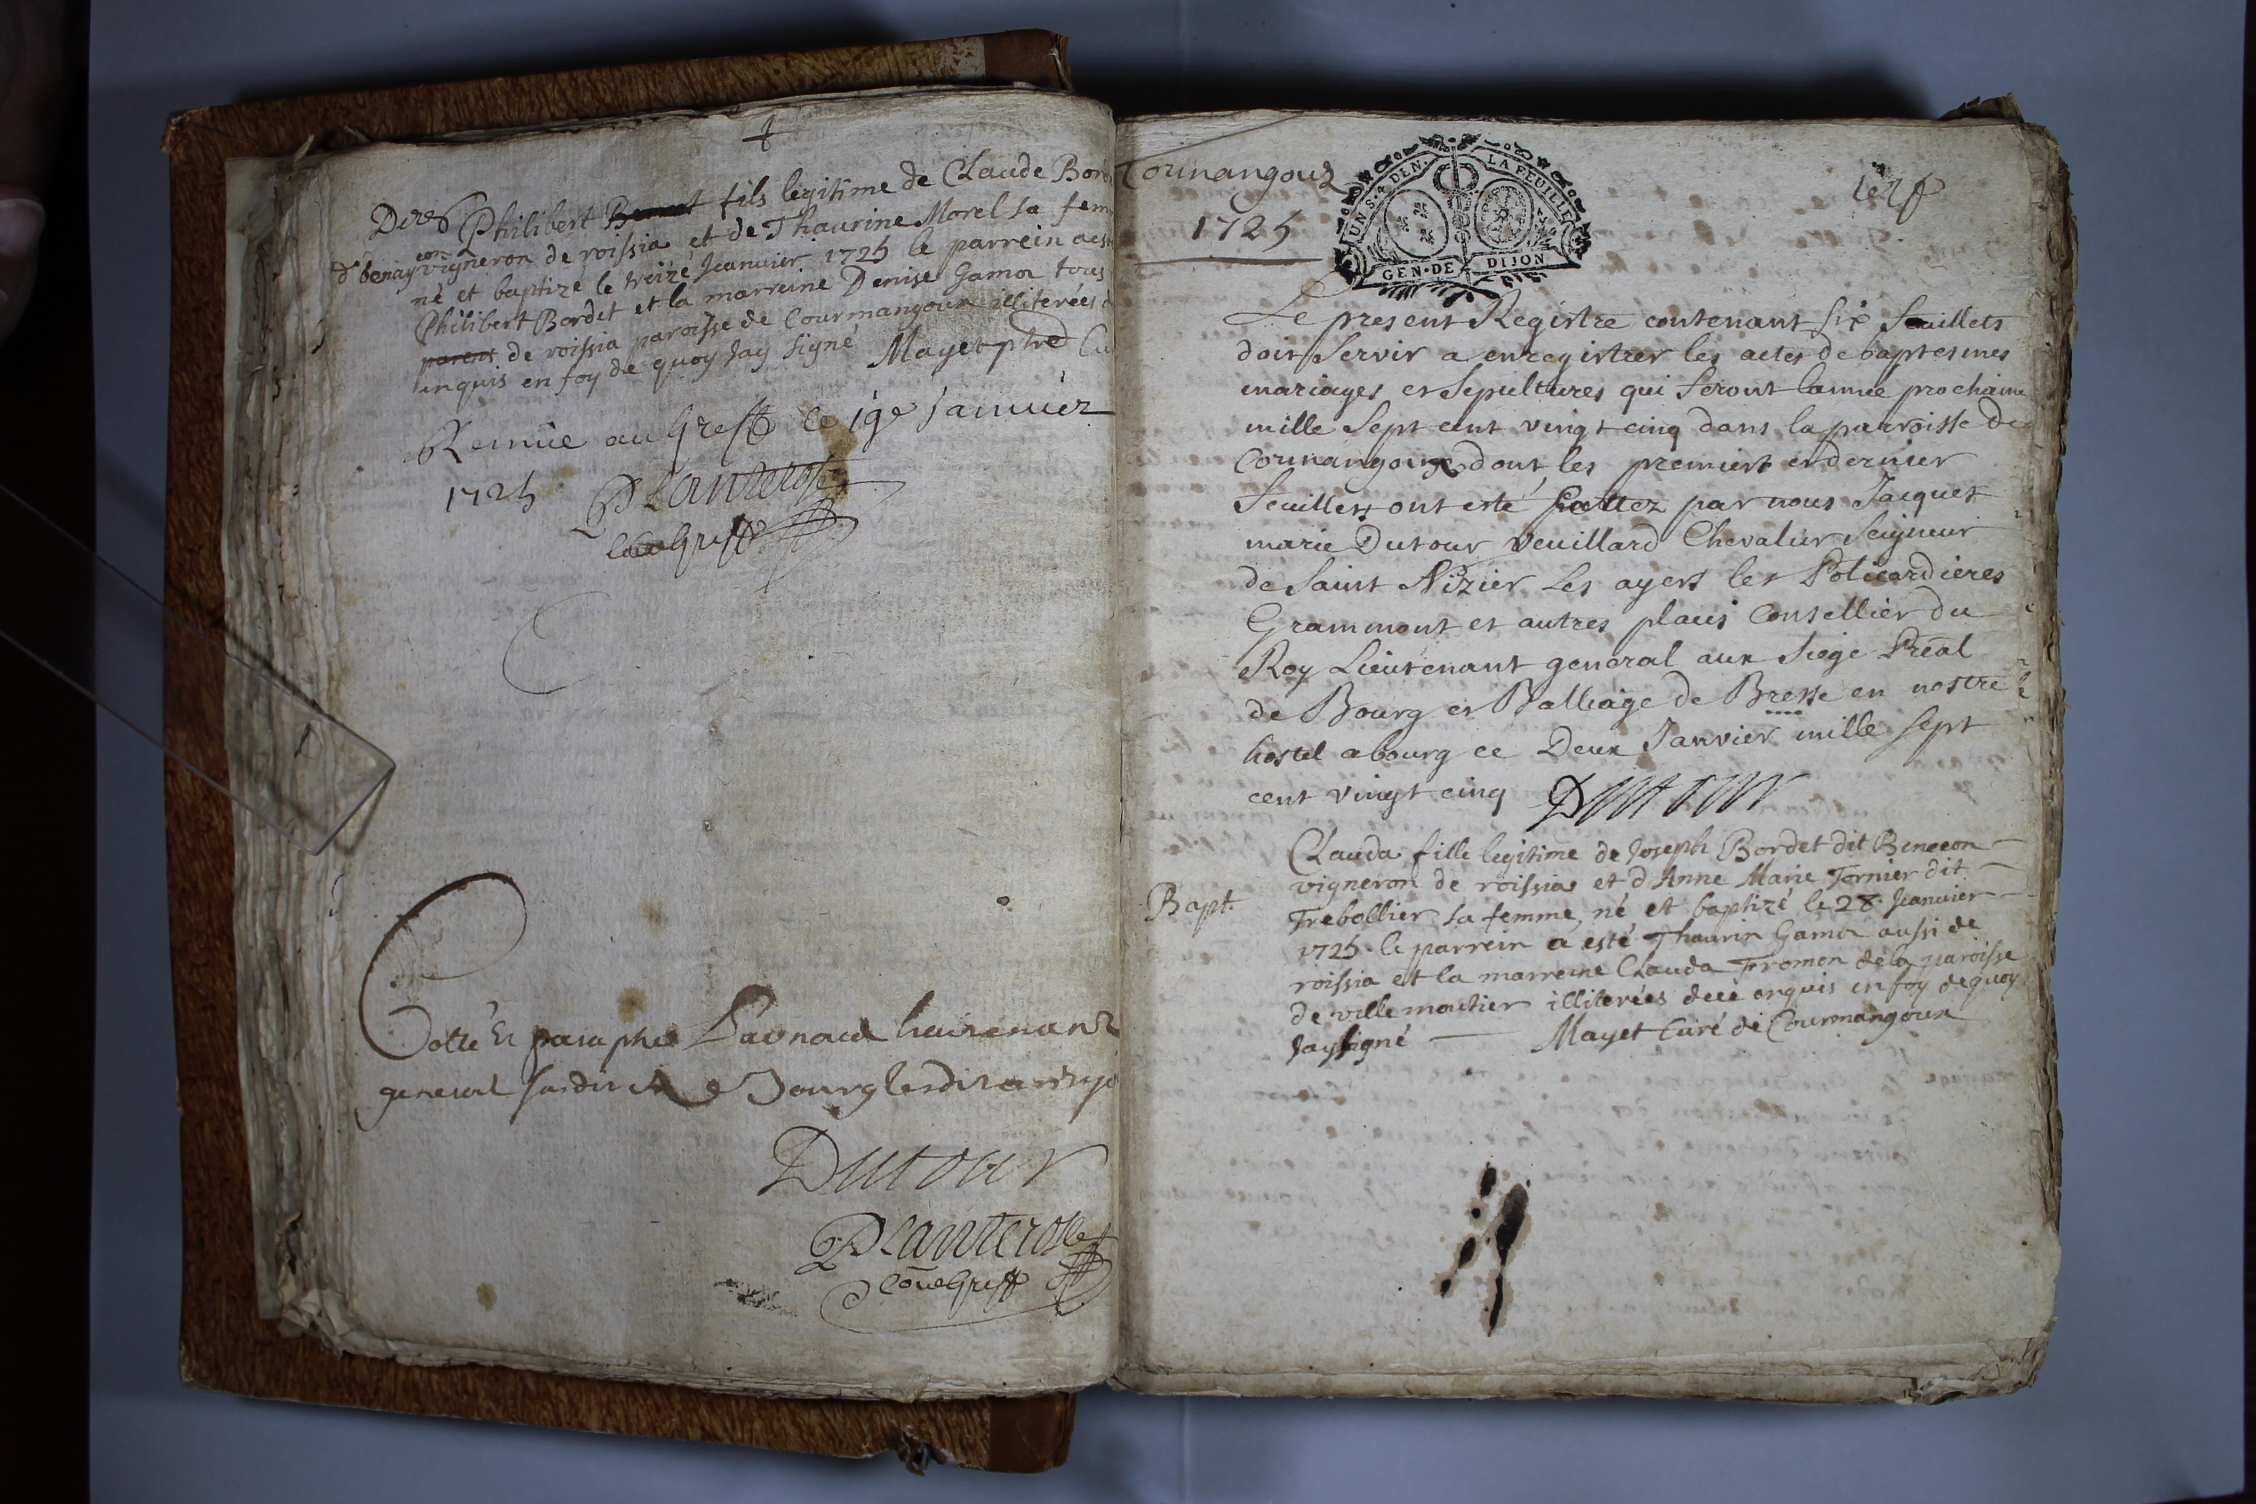 Philibert fils legitime de Claude
vigneron de roissia et de Thaurine Morel sa
né et baptizé le treizé Jeanvier 1725 le parrein
Philibert Bordet et la marreine Denise Gamoz tous
parent de roissia paroisse de Courmangoux illiterées
inquis en foy de quoy Jay signé Mayet ptre
Remise au Greff le 19e Janvier
1725 Planterose
Greff
Cotté Et paraphé Lieutenant
general a Bourg
Dutour
Planterose
Greff
1725
UN S. 4 DEN. LA FEUILLE
GEN. DE DIJON
1er f
Le present Registre contenant six feuillets
doit servir a enregistrer les actes de baptesmes
mariages et sepultures qui seront lannée prochaine
mille sept cent vingt cinq dans la parroisse de
dont les premiers et dernier
feuillets ont esté par nous Jacques
marie Dutour Veuillard Chevalier Seigneur
de Saint Nizier Les ayers les Policardieres
Grammont et autres places Consellier du
Roy Lieutenant general aux Siege Preal
de Bourg et Balliage de Bresse en nostre
hostel a bourg ce Deux Janvier mille sept
cent vingt cinq Dutour
Bapt.
Clauda fille legitime de Joseph Bordet dit Beneeon
vigneron de roissia et d'Anne Marie Tornier dit
Trebollier sa femme, né et baptizé le 28 Jeanvier
1725 le parrein a esté Thaurin Gamoz aussi de
roissia et la marreine Clauda Fromon de la paroisse
de villemoutier illiterées enquis en foy de quoy
Jay signé Mayet Curé de Courmangoux